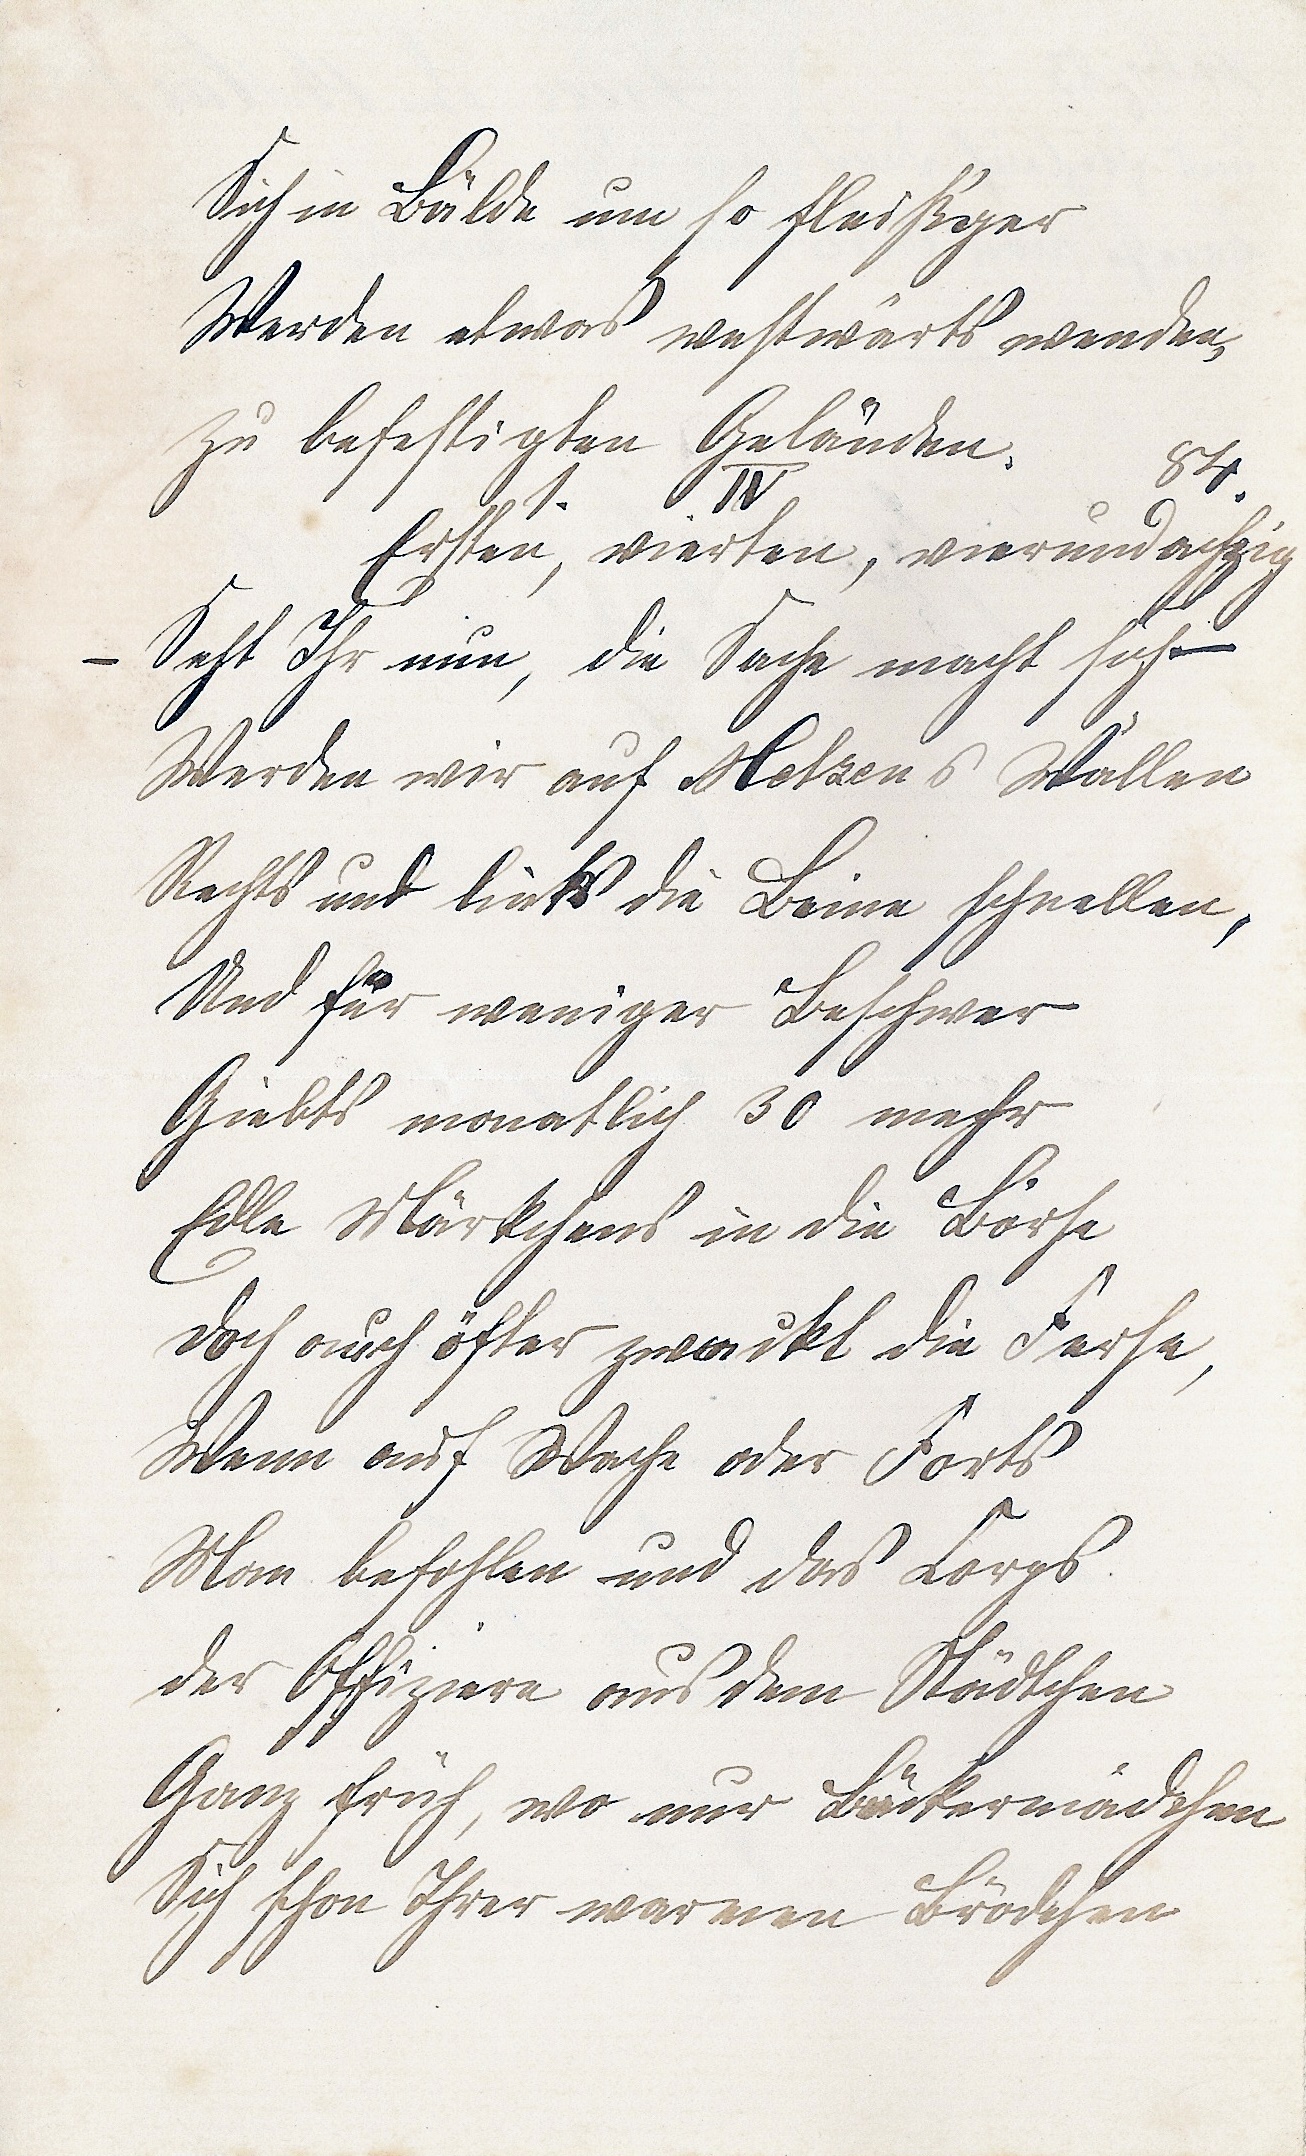 Sich in Bälde um so fleißiger
Werden etwas westwärts wenden,
zu befestigten Geländen.
1. IV 84.
Ersten, vierten, vierundachzig
– Seht Ihr nun, die Sache macht sich –
Werden wir auf Metzens Wällen
Rechts und links die Beine schnellen,
Und für weniger Beschwer
Giebts monatlich 30 mehr
Edle Märkchens in die Börse
Doch auch öfter zwackt die Ferse,
Wenn auf Wache oder Forts
Man befohlen und das Corps
der Offiziere aus dem Städtchen
Ganz früh, wo nur Bäckermädchen
Sich schon Ihrer warmen Brödchen